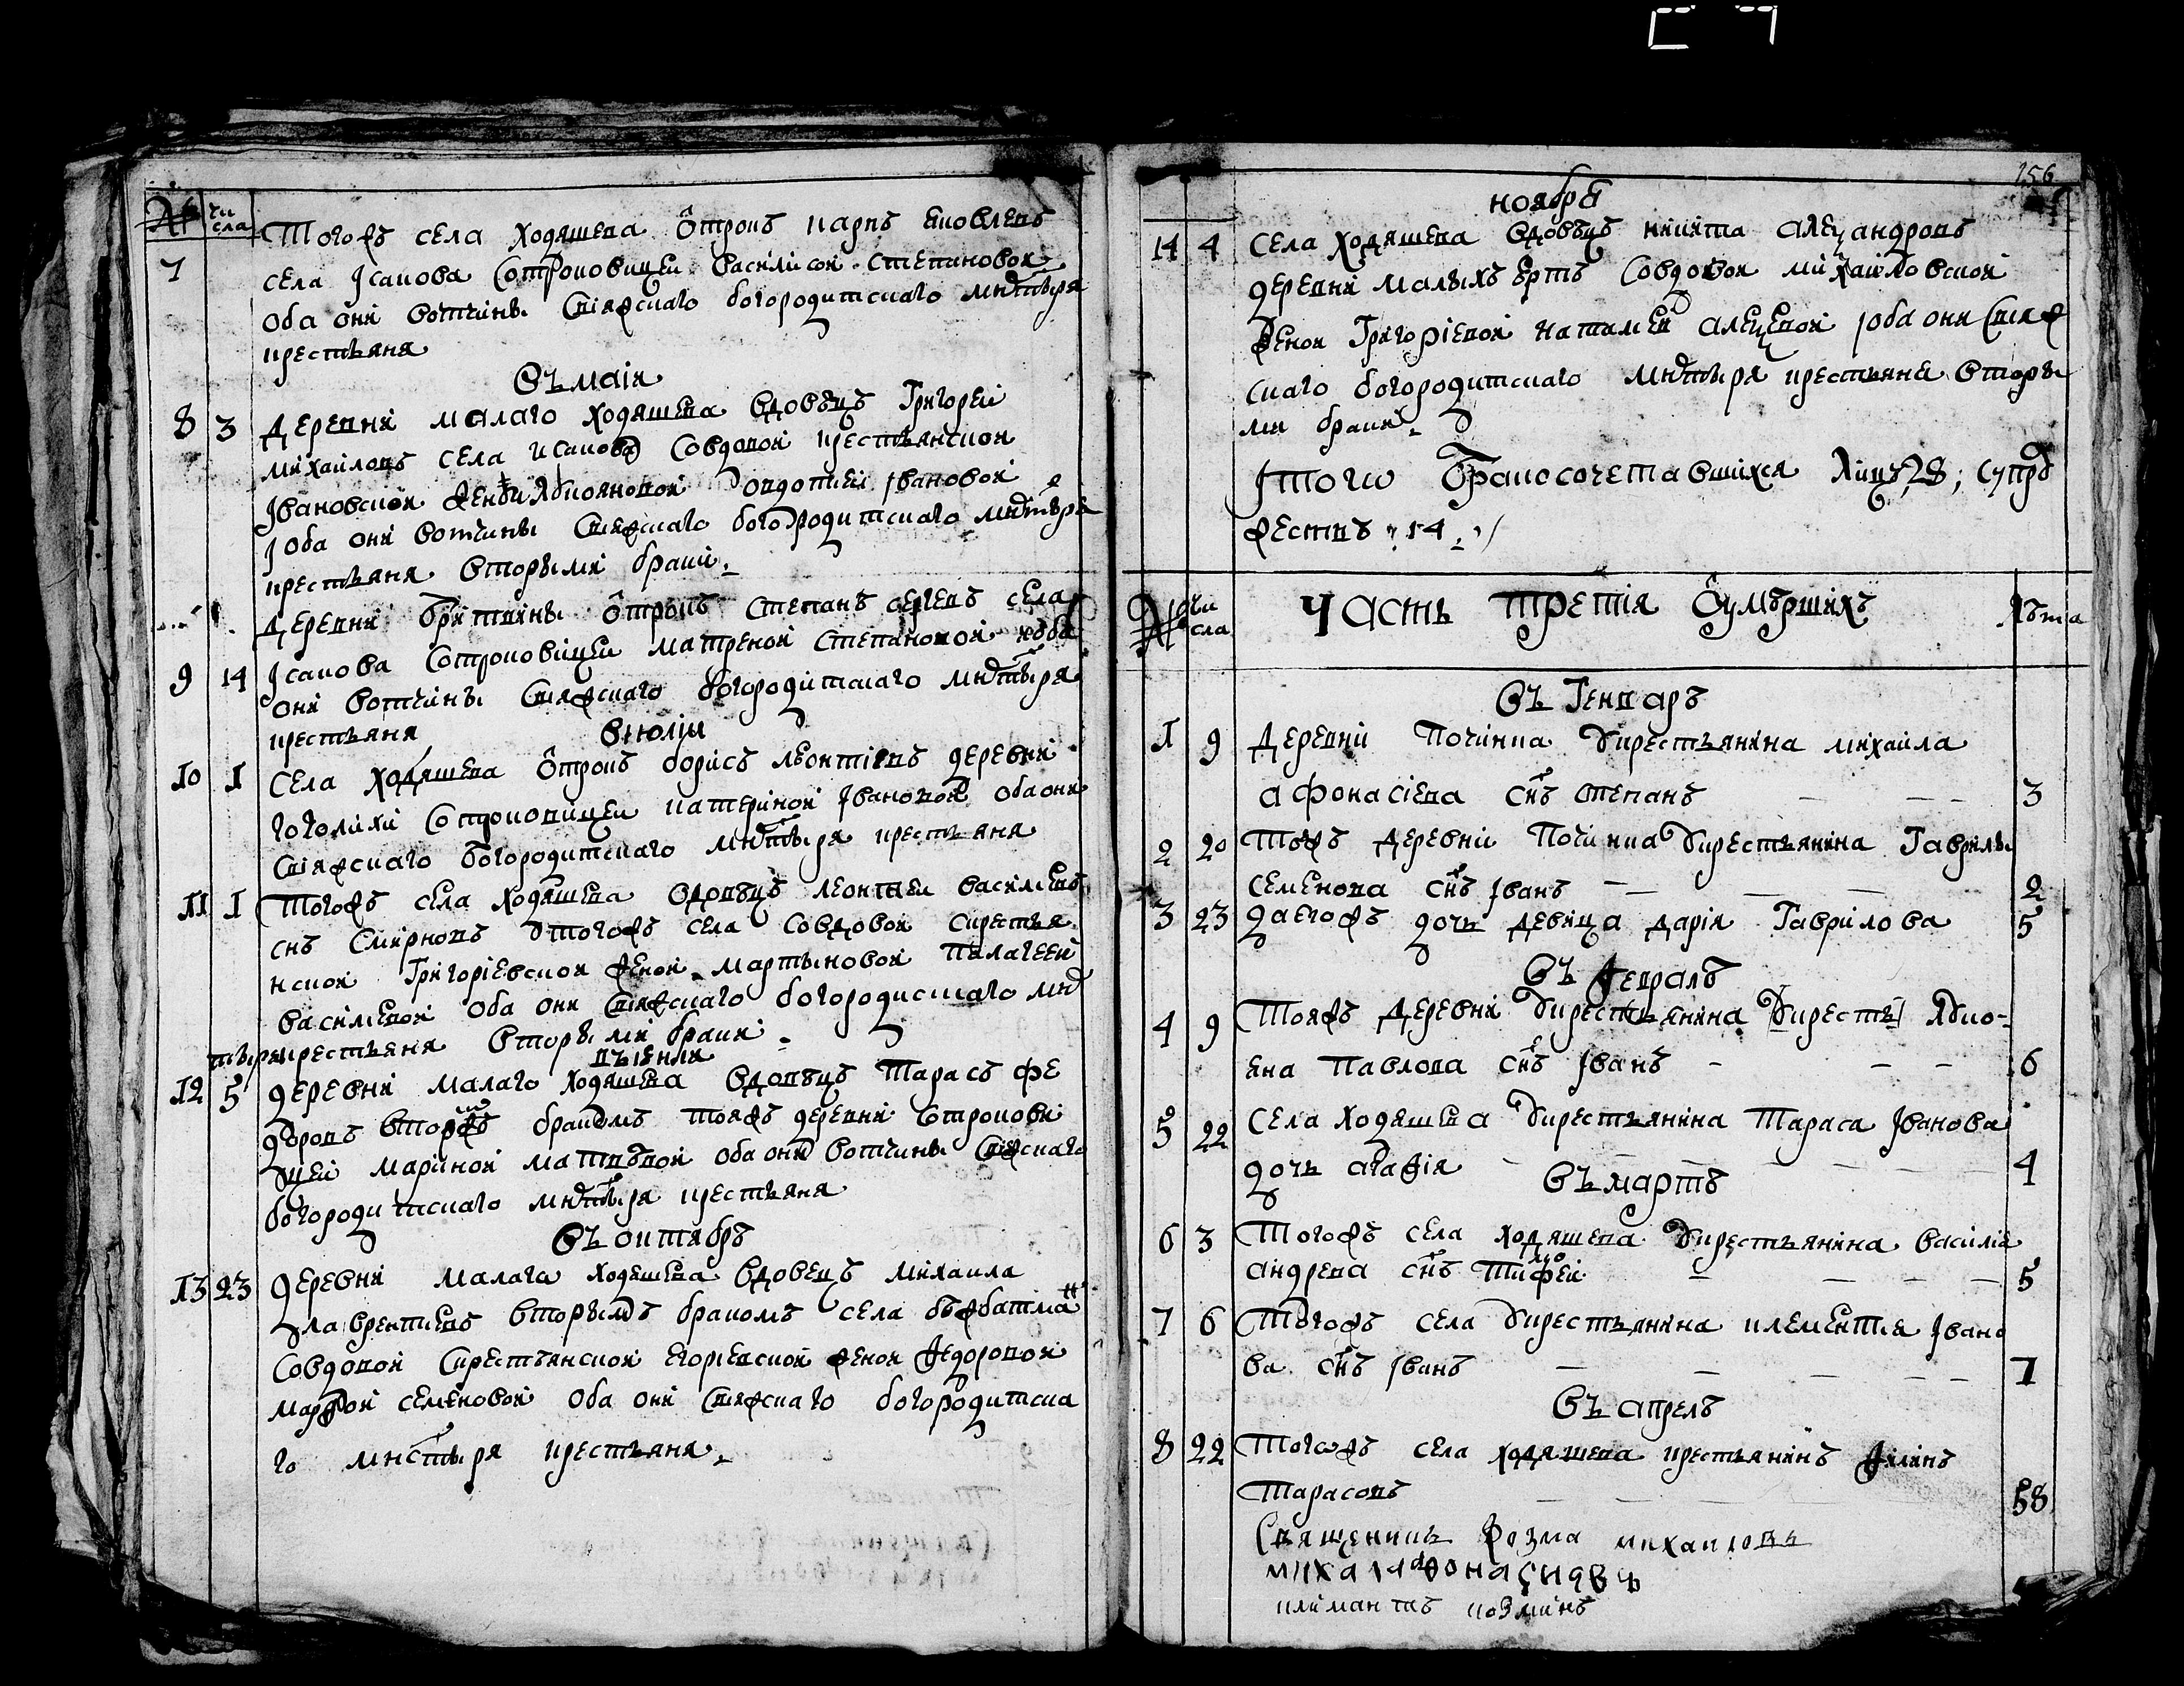 № числа
7 Тогожъ села Ходяшева ôтрокъ карпъ яковлевъ
села Iсакова Сотроковицеи василисои степановои
оба они вотчины Свіяжскаго богородитскаго мнстыря
крестьяня
Въ маія
8 3 Деревни малаго ходяшева вдовецъ Григореи
михаиловъ села исакова совдовои крестьянскои
Iвановскои женои Авдотьеи Iвановои
Iоба они вотчины Свияжскаго богородитскаго мнстыря
крестьяня вторыми браки
деревни ôтрокъ степанъ села
9 14 Iсакова Сотроковицеи матреной степановой иоба
они вотчины Свияжскаго богородитскаго мнстыря
крестьяня
Виюліи
10 1 Села ходяшева ôтрокъ борисъ леонтіевъ деревни
гоголихи Сотроковицеи катериной Iвановой оба они
Свіяжскаго богородитскаго мнстыря крестьяня
11 1 Тогожъ села ходяшева вдовецъ леонтеи василиевъ
снъ Смирновъ тогожъ села совдовои скрестья
нскои Григоріевскои женои мартыновой Пелагеей
василиевой оба они свияжскаго богородисткаго мн
стыря крестьяня вторыми браки
12 5 деревни малаго ходяшева вдовецъ Тарасъ фе
доровъ вторымъ бракомъ тояжъ деревни Сотрокови
цей мариной матвѣвой оба они вотчины Свіяжскаго
богородитскаго мнстыря крестьяня
Въ октябрѣ
13 23 деревни малаго ходяшева вдовецъ михаила
лаврентиевъ вторымъ бракомъ села
Совдовой Скрестьянской Егориевской женои Федоровой
марфои семеновой оба они Свияжскаго богородитска
го мнстыря крестьяня
156
ноября
14 4 Села Ходяшева вдовецъ никита алеѯандровъ
деревни малыхъ Совдовои михаиловской
женои Григоріевой наталіеи алеѯѣевой iоба они свияж
скаго богородитскаго мнстыря крестьяне вторы
ми браки
Iтого Бракосочетавшихся лицъ 28; супру
жествъ 14
№ числа Часть третія ôумѣршихъ лѣта
Въ Генварѣ
1 9 Деревни Починка крестьянина михаила
афонасіева снъ степанъ 3
2 20 Тожъ деревни Починка крестьянина Гаврилы
семенова снъ Iванъ 2
3 23 даегожъ дочь девица дарія Гаврилова 5
Въ Февралѣ
4 9 Тояжъ Деревни крестьянина
яна Павлова снъ Iванъ 6
5 22 Села ходяшева крестьянина Тараса Iванова
дочь агафія 4
Въ мартѣ
6 3 Тогожъ села ходяшева крестьянина василія
андрева снъ Тимофеи 5
7 6 Тогожъ села крестьянина клементья Iвано
ва снъ Iванъ 7
Въ апрелѣ
8 22 Тогожъ села ходяшева крестьянинъ Филипъ
Тарасовъ 58
Священникъ Козма михаиловъ
михаил афонасиевъ
клемантеи козминъ